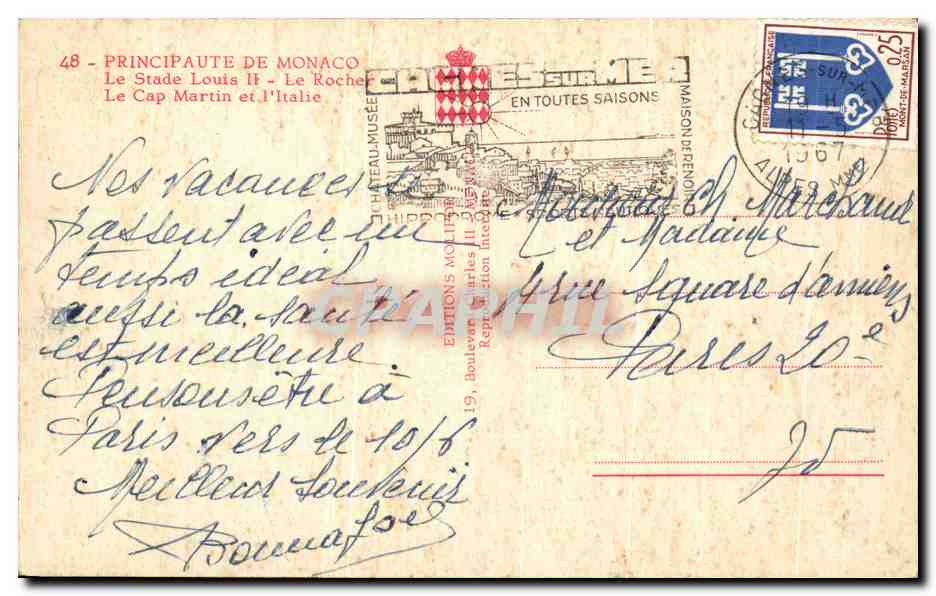 48 - PRINCIPAUTE DE MONACO
Le Stade Louis II - Le Rocher
Le Cap Martin et l'Italie
CAGNES SUR MER
EN TOUTES SAISONS
CHATEAU-MUSÉE
MAISON DE RENOIR
HIPPODROME
REPUBLIQUE FRANÇAISE
0,25
POSTES
MONT-DE-MARSAN
SUR
1967
ALPES MMES
Nos vacances se
passent avec un
temps idéal
aussi la santé
est meilleure
Pensons être à
Paris vers le 10/6
Meilleur Souvenir
EDITIONS MOLIPOR
19, Boulevard Charles III - MONACO
Reproduction Interdite
Monsieur Ch Marchand
et Madame
4 rue Square d'amiens
Paris 20e
CPAPHIL